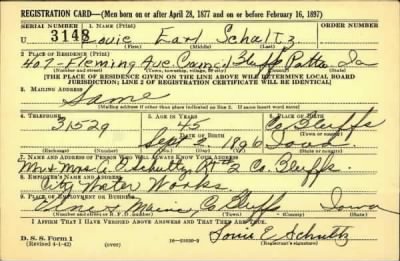 REGISTRATION CARD—(Men born on or after April 28, 1877 and on or before February 16, 1897)
SERIAL NUMBER 1. NAME (Print)
3148 Earl Schultz
(First) (Middle) (Last)
2. PLACE OF RESIDENCE (Print)
407 - Fleming Ave. Council Bluffs Ia
(Number and street) (Town, township, village, or city) (County) (State)
[THE PLACE OF RESIDENCE GIVEN ON THE LINE ABOVE WILL DETERMINE LOCAL BOARD
JURISDICTION; LINE 2 OF REGISTRATION CERTIFICATE WILL BE IDENTICAL]
3. MAILING ADDRESS
Same
(Mailing address if other than place indicated on line 2. If same insert word same)
4. TELEPHONE 5. AGE IN YEARS 6. PLACE OF BIRTH
31529 45 Co Bluffs
DATE OF BIRTH (Town or county)
Sept 2 1896 Iowa
(Exchange) (Number) (Mo.) (Day) (Yr.) (State or country)
7. NAME AND ADDRESS OF PERSON WHO WILL ALWAYS KNOW YOUR ADDRESS
Mr & Mrs A. Schultz, Rt 2 Co. Bluffs
8. EMPLOYER'S NAME AND ADDRESS
City Water Works
9. PLACE OF EMPLOYMENT OR BUSINESS
Co Bluffs Iowa
(Number and street or R. F. D. number) (Town) (County) (State)
I AFFIRM THAT I HAVE VERIFIED ABOVE ANSWERS AND THAT THEY ARE TRUE.
D. S. S. Form 1
(Revised 4-1-42) (over) E Schultz
(Registrant's signature)